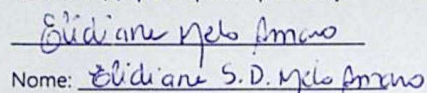 Elidiane Melo Amaro
Nome: Elidiane S. D. Melo Amaro